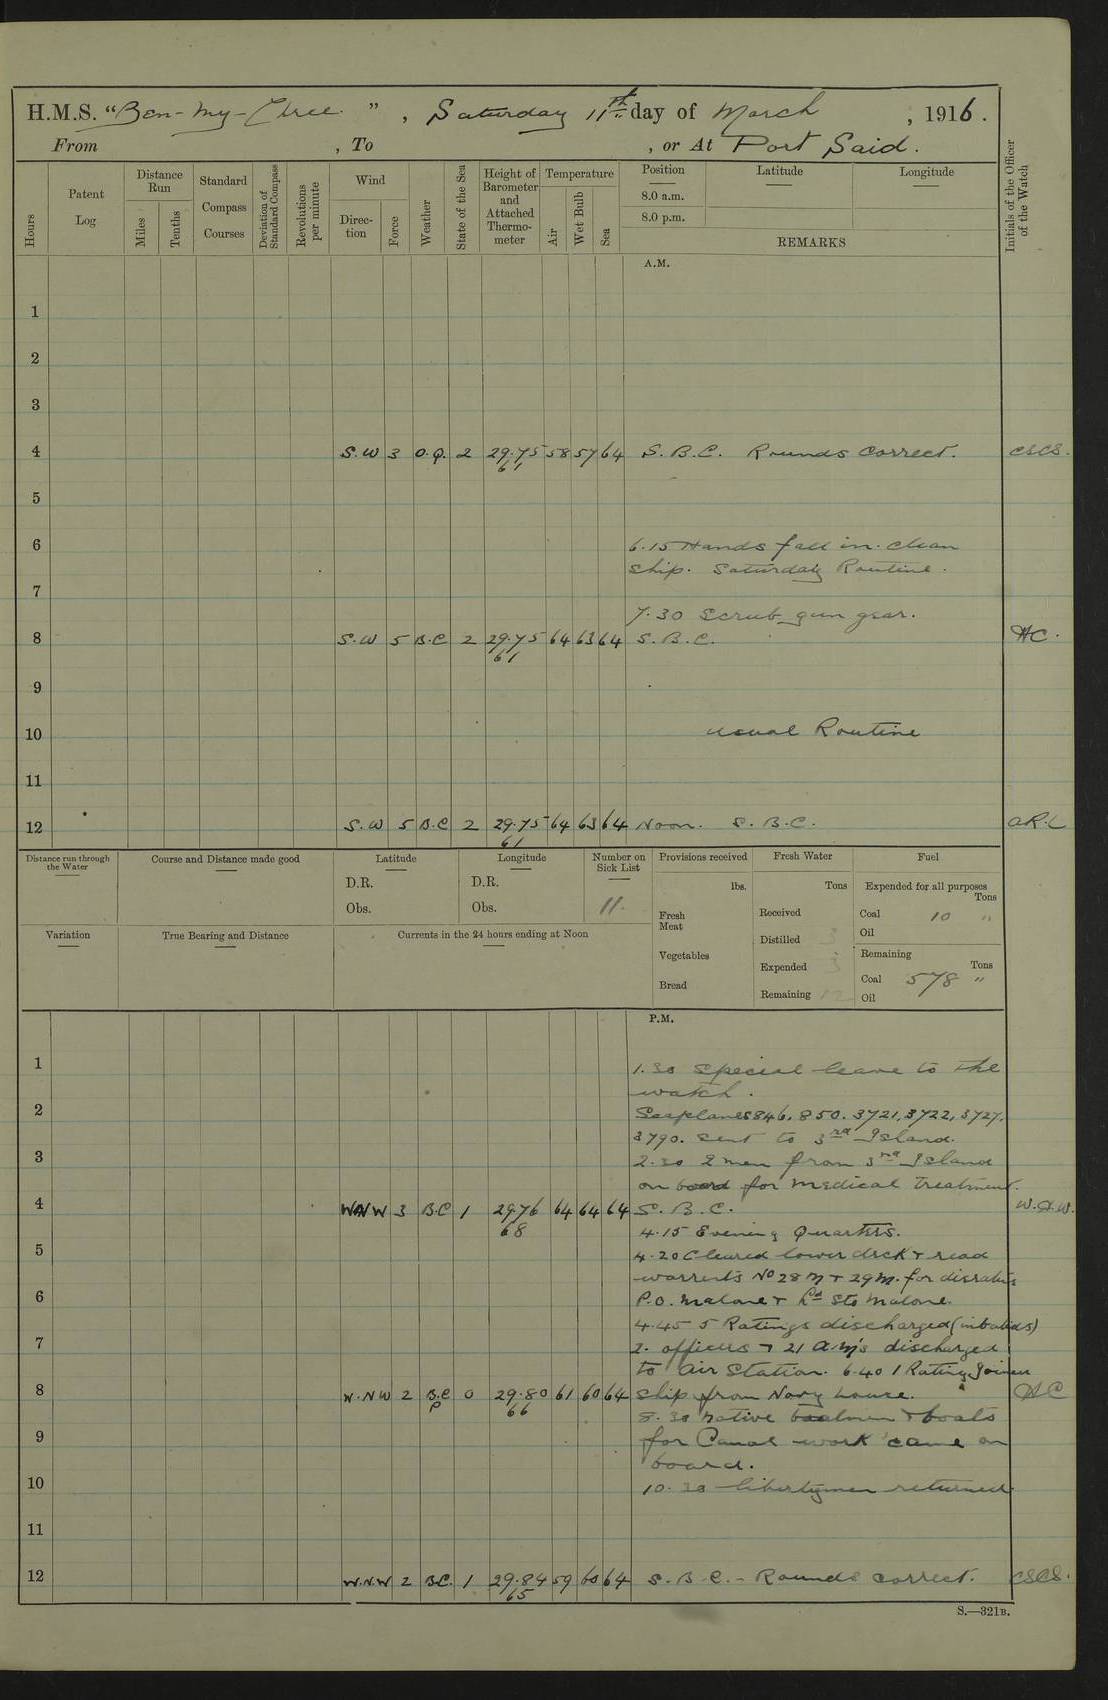 H.M.S. "Ben-my-Chree." , Saturday 11th day of March , 1916.
From , To , or At Port Said.
Hours
Patent Log
Distance Run
Miles
Tenths
Standard Compass Courses
Deviation of Standard Compass
Revolutions per minute
Wind
Direction
Force
Weather
State of the Sea
Height of Barometer and Attached Thermometer
Temperature
Air
Wet Bulb
Sea
Position
8.0 a.m.
8.0 p.m.
Latitude
Longitude
REMARKS
Initials of the Officer of the Watch
A.M.
1
2
3
4 S.W 3 O.Q. 2 29.75 58 57 64 S.B.C. Rounds correct. CSCS.
61
5
6 6.15 Hands fall in. clean
ship. Saturday Routine.
7
7.30 Scrub gun gear.
8 S.W 5 B.C 2 29.75 64 63 64 S.B.C. HC.
61
9
10 usual Routine
11
12 S.W 5 B.C 2 29.75 64 63 64 Noon. S.B.C.
61
Distance run through the Water
Course and Distance made good
Latitude
D.R.
Obs.
Longitude
D.R.
Obs.
Number on Sick List
11.
Provisions received
lbs.
Fresh Meat
Vegetables
Bread
Fresh Water
Tons
Received
Distilled 3
Expended 3
Remaining
Fuel
Expended for all purposes
Tons
Coal 10 "
Oil
Remaining
Tons
Coal 578 "
Oil
Variation
True Bearing and Distance
Currents in the 24 hours ending at Noon
P.M.
1 1.30 Special leave to the
watch.
2 Seaplanes 846. 850. 3721, 3722, 3727,
3790. sent to 3rd Island.
3 2.30 2 men from 3rd Island
on board for medical treatment.
4 WNW 3 B.C 1 29.76 64 64 64 S.B.C. W.H.W.
68 4.15 Evening Quarters.
5 4.20 Cleared lower deck + read
warrents No 28 M + 29 M. for disrating
6 P.O. Malone + Ld Sto Malone.
4.45 5 Ratings discharged (invalids)
7 2. officers + 21 A.M's discharged
to Air Station. 6.40 1 Rating Joined
8 W.NW 2 B.C 0 29.80 61 60 64 Ship from Navy house. HC
P 66
8.30 native boatmen + boats
9 for Canal work came on
board.
10 10.30 libertymen returned
11
12 W.N.W 2 B.C. 1 29.84 59 60 64 S.B.C. - Rounds correct. CSCS.
65
S.—321B.